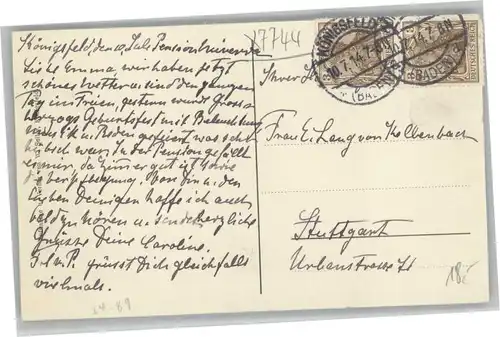 17744
Königsfeld, den 10. Juli Pension
Liebe Emma wir haben jetzt
schönes Wetter u. sind den ganzen
Tag im Freien, gestern wurde Gross-
herzogs Geburtsfest mit Beleuchtung
Musik u. Reden gefeiert was sehr
hübsch war. In der Pension gefällt
es mir, da Zimmer gut ist sowie
die Verpflegung. Von Dir u. den
lieben Deinigen hoffe ich auch
bald zu hören u. sende herzliche
Grüsse Deine Caroline.
grüsst Dich gleichfalls
vielmals.
KÖNIGSFELD
10.7.14.7-8N
(BADEN)
10.7.14.7-8N
(BADEN)
DEUTSCHES REICH
Frau E. Lang von
Stuttgart
Urbanstrasse